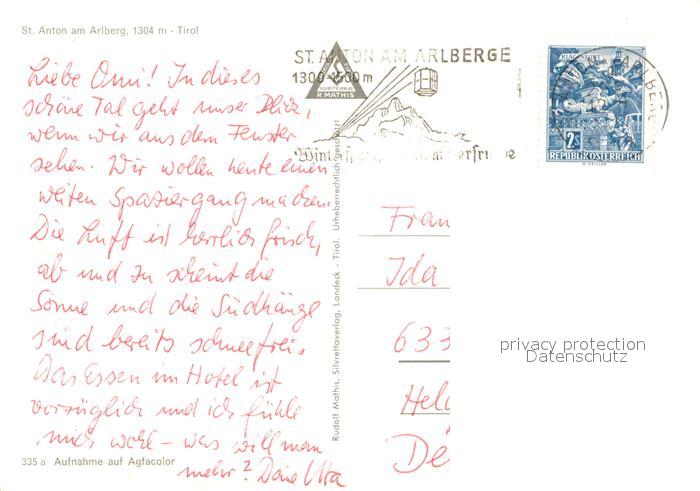 St. Anton am Arlberg, 1304 m - Tirol
Liebe Omi! In dieses
schöne Tal geht unser Blick,
wenn wir aus dem Fenster
sehen. Wir wollen heute einen
weiten Spaziergang machen.
Die Luft ist herrlich frisch,
ab und zu scheint die
Sonne und die Südhänge
sind bereits schneefrei.
Das Essen im Hotel ist
vorzüglich und ich fühle
mich wohl – was will man
mehr? Deine Uta
335 a Aufnahme auf Agfacolor
Rudolf Mathis, Silvrettaverlag, Landeck - Tirol. Urheberrechtlich geschützt
ST. ANTON AM ARLBERGE
1300-1500 m
SILVRETTA VERLAG
R. MATHIS
KLAGENFURT
2 S
REPUBLIK ÖSTERREICH
ARLBERG
Frau
Ida
633
privacy protection
Datenschutz